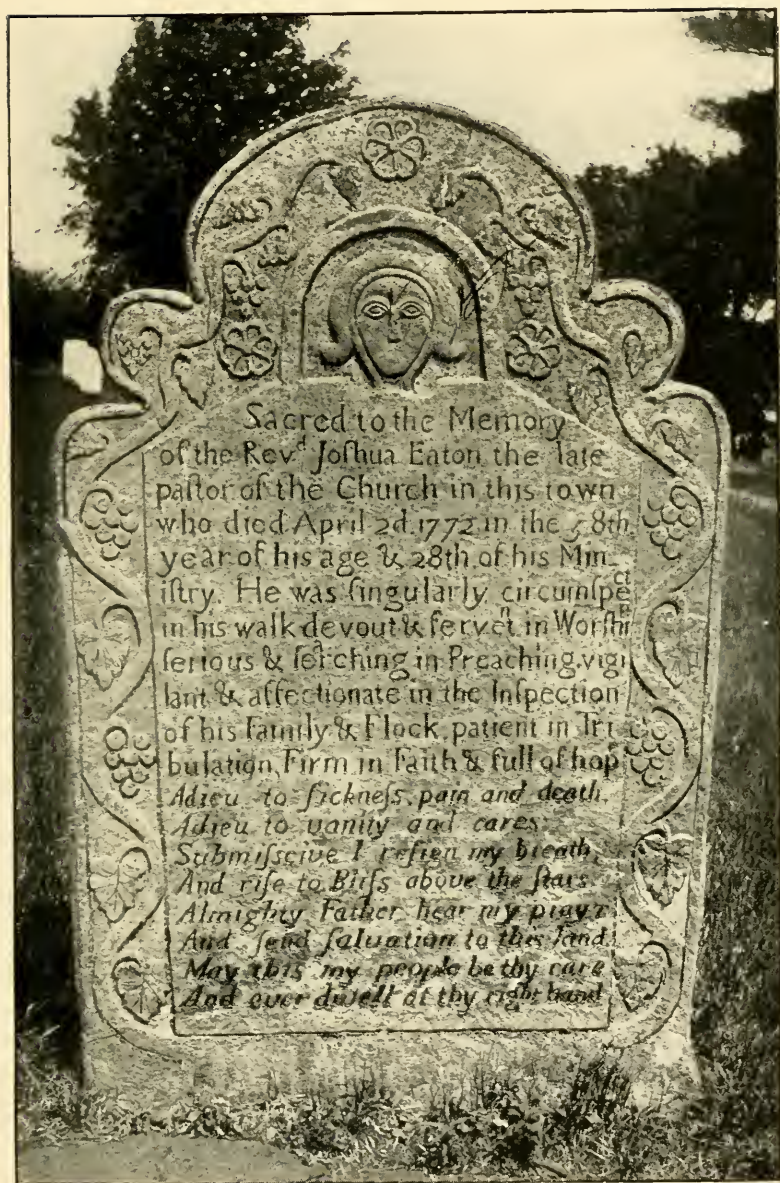 Sacred to the Memory
of the Revᵈ Joſhua Eaton the late
paſtor of the Church in this town
who died April 2d. 1772 in the 58th
year of his age & 28th of his Min_
iſtry. He was ſingularly circumſpeᶜᵗ
in his walk devout & ferveⁿt in Worſhiᵖ
ſerious & ſeʳching in Preaching, vigi
lant & affectionate in the Inſpection
of his Family & Flock, patient in Tri
bulation, Firm in Faith & full of hop
Adieu to ſickneſs, pain and death,
Adieu to vanity and cares
Submiſscive I reſign my breath,
And riſe to Bliſs above the ſtars.
Almighty Father hear my pray'r
And ſend ſalvation to this land
May this my people be thy care
And ever dwell at thy right hand